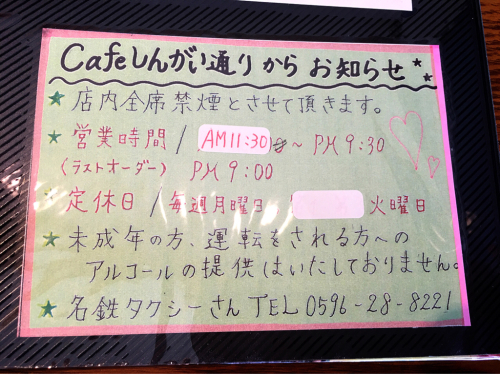 Cafeしんがい通りから お知らせ
★ 店内全席禁煙とさせて頂きます。
★ 営業時間 / AM11:30 ~ PM 9:30
(ラストオーダー) PM 9:00
★ 定休日 / 毎週月曜日 火曜日
★ 未成年の方、運転をされる方への
アルコールの提供はいたしておりません。
★ 名鉄タクシーさん TEL 0596-28-8221